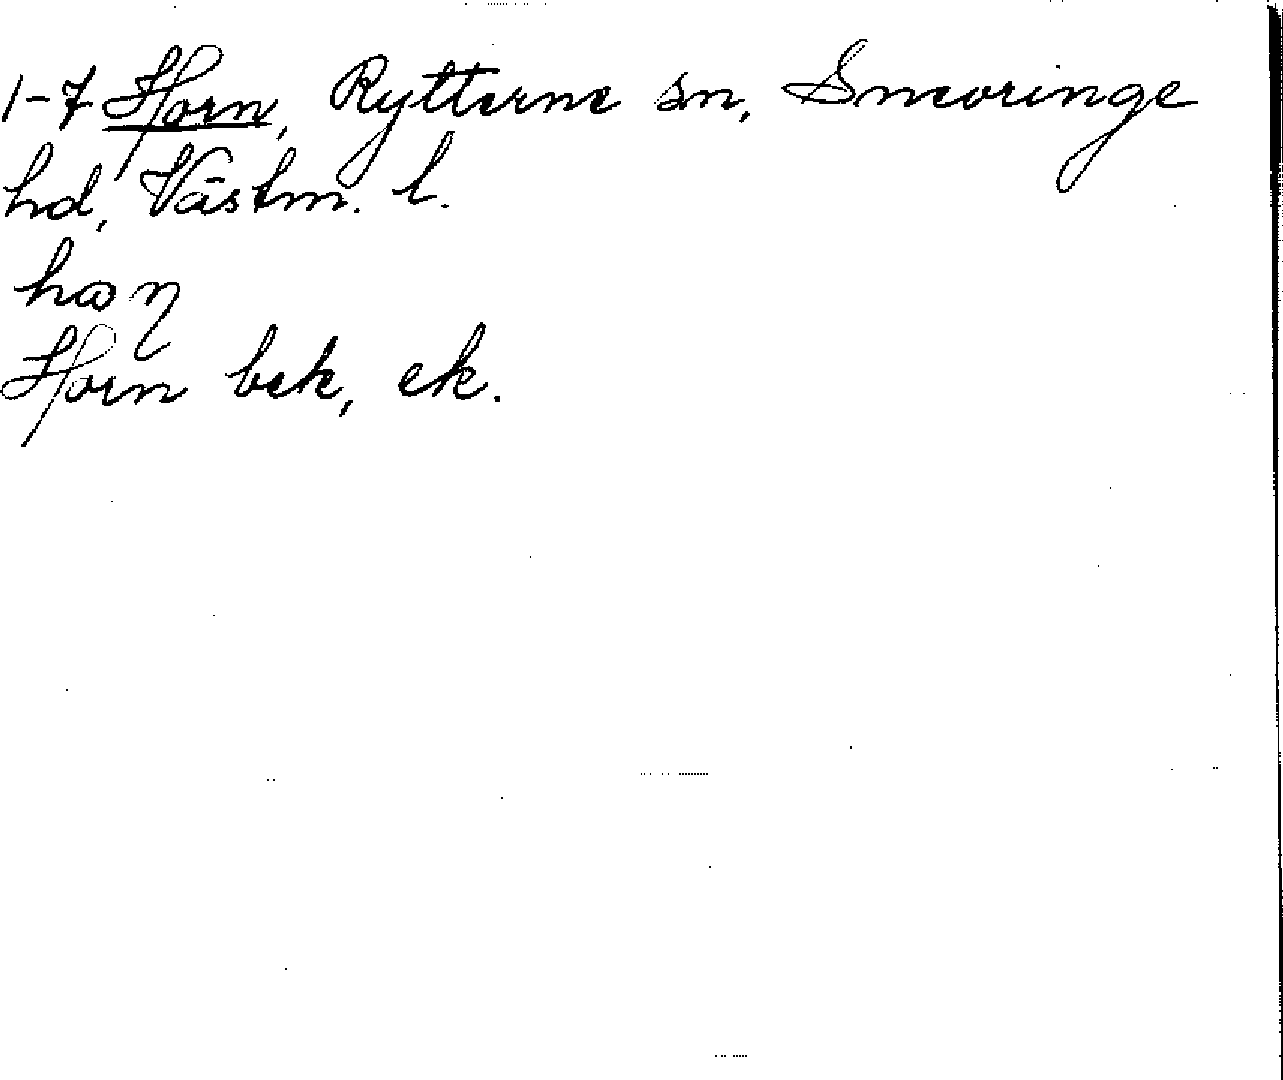 1-7 Horn, Rytterne sn, Snevringe
hd, Västm. l.
Horn bek, ek.